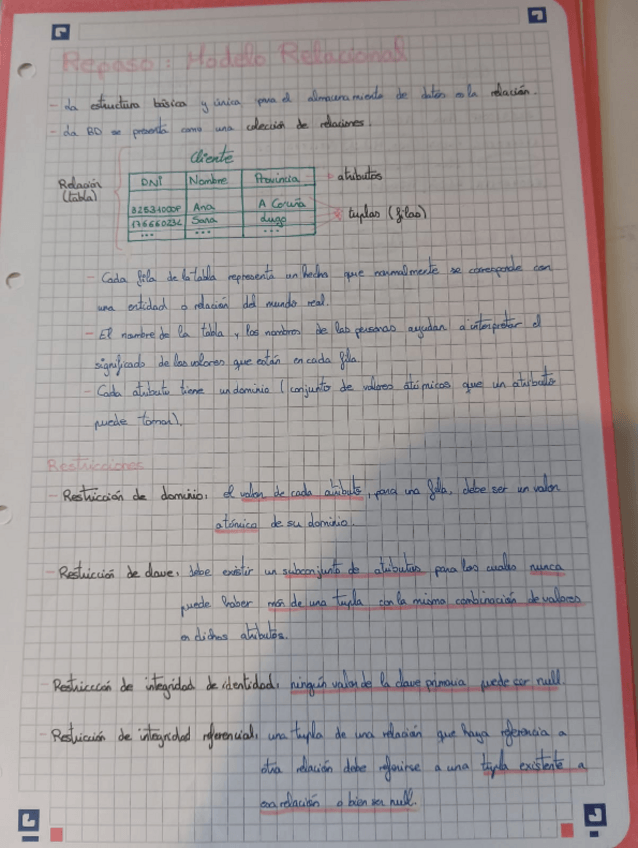 Repaso: Modelo Relacional
- La estructura básica y única para el almacenamiento de datos es la relación.
- La BD se presenta como una colección de relaciones.
Cliente
Relación (tabla)
DNI Nombre Provincia → atributos
Ana A Coruña
Sara Lugo → tuplas (filas)
... ... ...
- Cada fila de la tabla representa un hecho que normalmente se corresponde con
una entidad o relación del mundo real.
- El nombre de la tabla y los nombres de las personas ayudan a interpretar el
significado de los valores que están en cada fila.
- Cada atributo tiene un dominio (conjunto de valores atómicos que un atributo
puede tomar).
Restricciones
- Restricción de dominio: el valor de cada atributo, para una fila, debe ser un valor
atómico de su dominio.
- Restricción de clave: debe existir un subconjunto de atributos para los cuales nunca
puede haber más de una tupla con la misma combinación de valores
en dichos atributos.
- Restricción de integridad de identidad: ningún valor de la clave primaria puede ser null.
- Restricción de integridad referencial: una tupla de una relación que haga referencia a
otra relación debe referirse a una tupla existente a
esa relación o bien ser null.